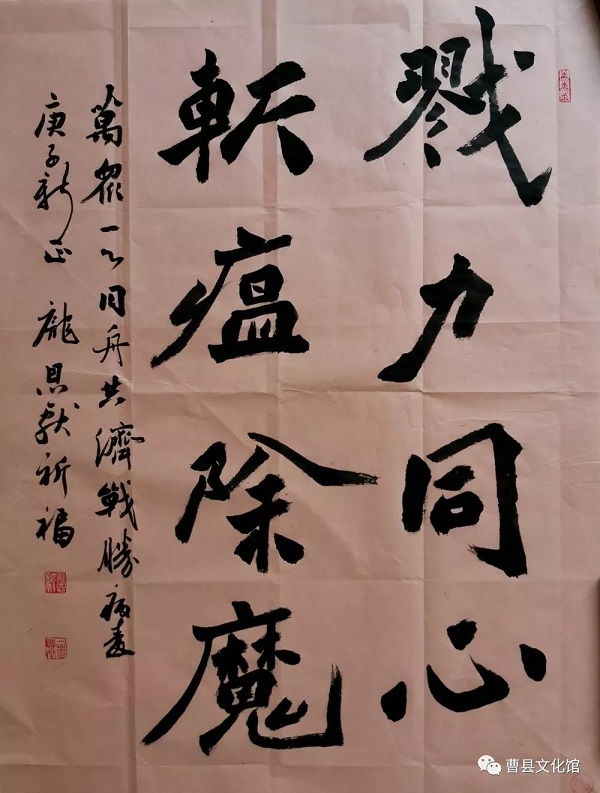 戮力同心
斬瘟除魔
萬眾一心同舟共濟戰勝病毒
庚子新正 龐獻祈福
曹县文化馆